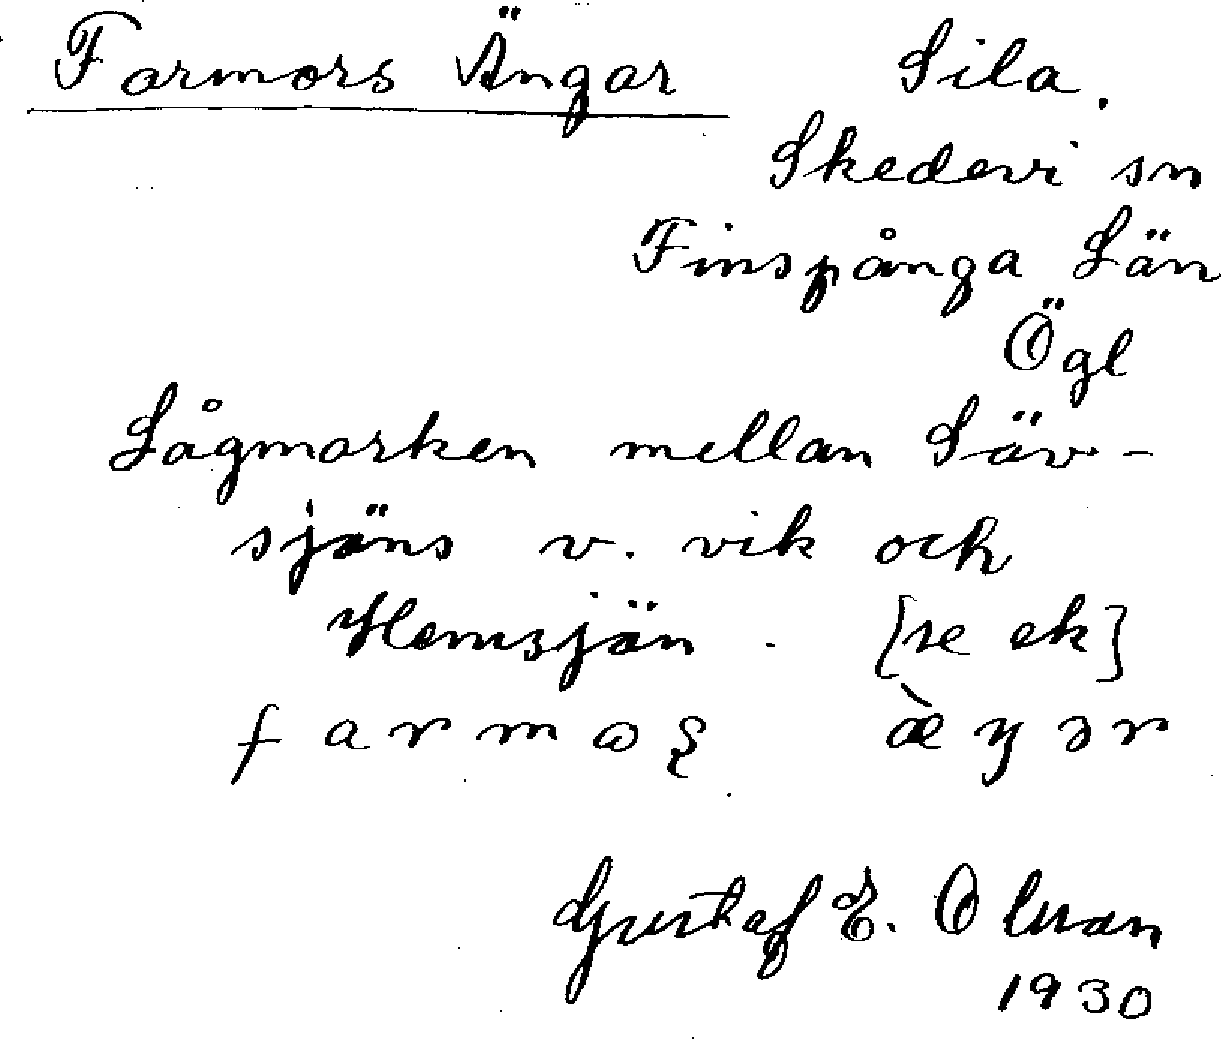 Farmors Ängar Sila.
Skedevi sn
Finspånga Län
Ögl
Lågmarken mellan Säv-
sjäns v. vik och
Hemsjön. [se ek]
farmoʂ æ̀ŋər
Gustaf E. Olsson
1930